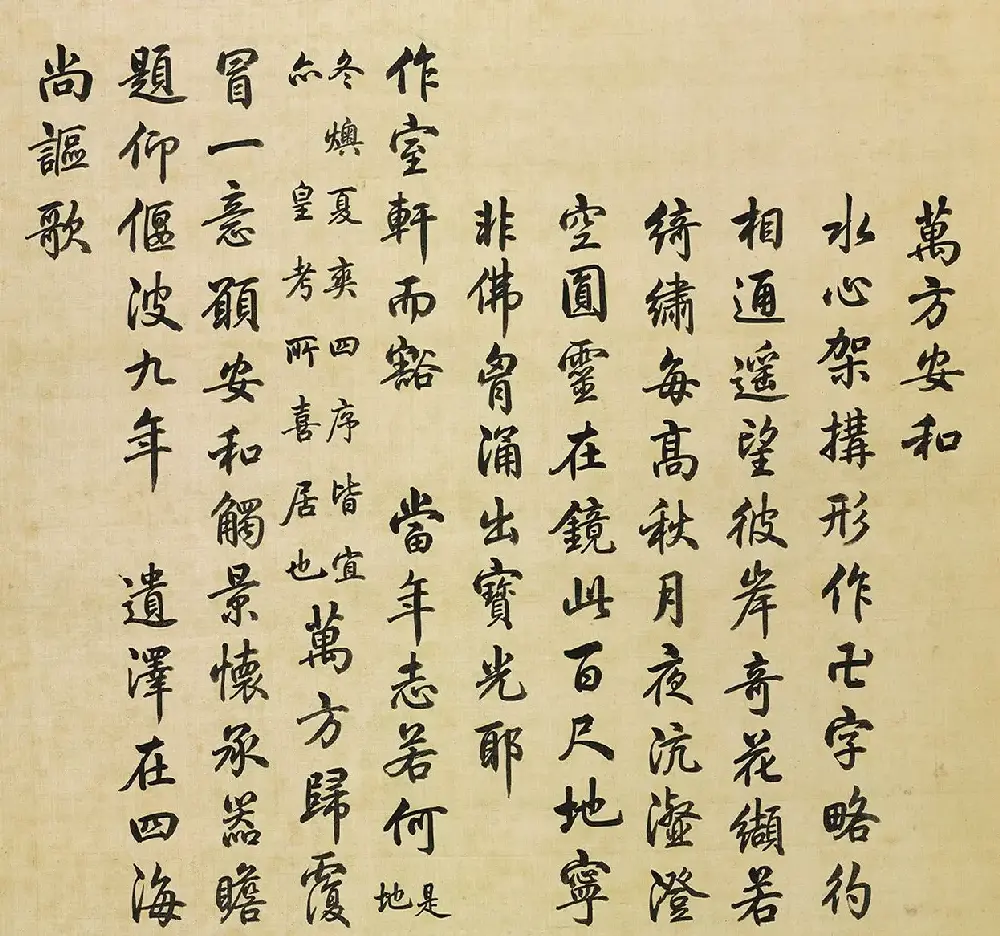 萬方安和
水心架構形作卍字略彴
相通遥望彼岸奇花纈若
綺繡每高秋月夜沆瀣澄
空圓靈在鏡此百尺地寧
非佛胷涌出寶光耶
作室軒而豁 當年志若何 是地
冬燠夏爽四序皆宜
亦 皇考所喜居也
萬方歸覆
冒一意願安和觸景懷承器瞻
題仰偃波九年 遺澤在四海
尚謳歌